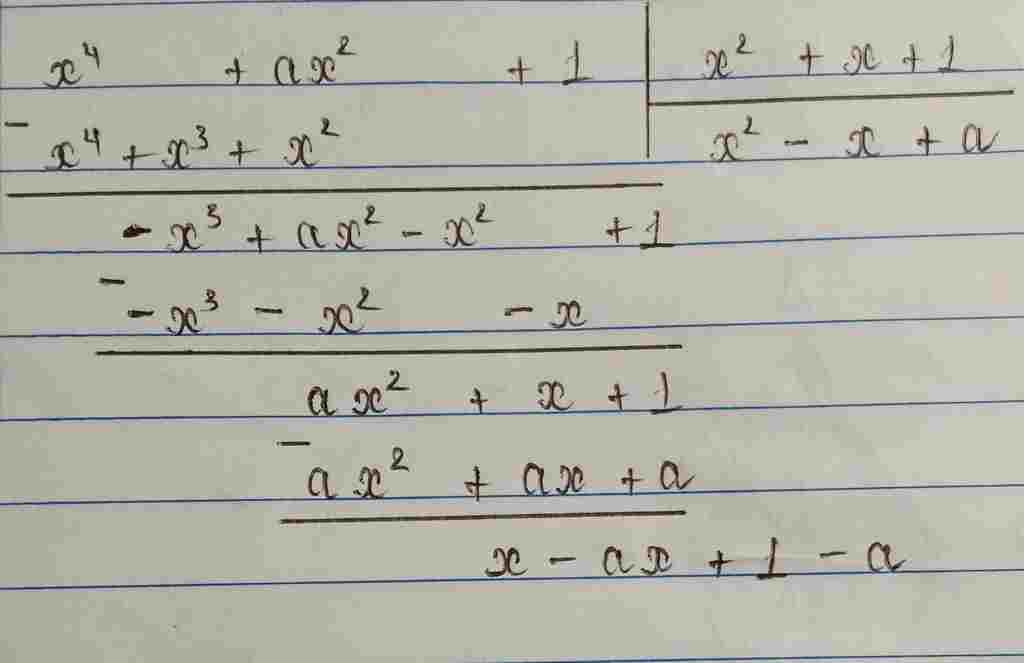 x⁴ + ax² + 1 | x² + x + 1
- x⁴ + x³ + x² | x² - x + a
- x³ + ax² - x² + 1
- - x³ - x² - x
ax² + x + 1
- ax² + ax + a
x - ax + 1 - a